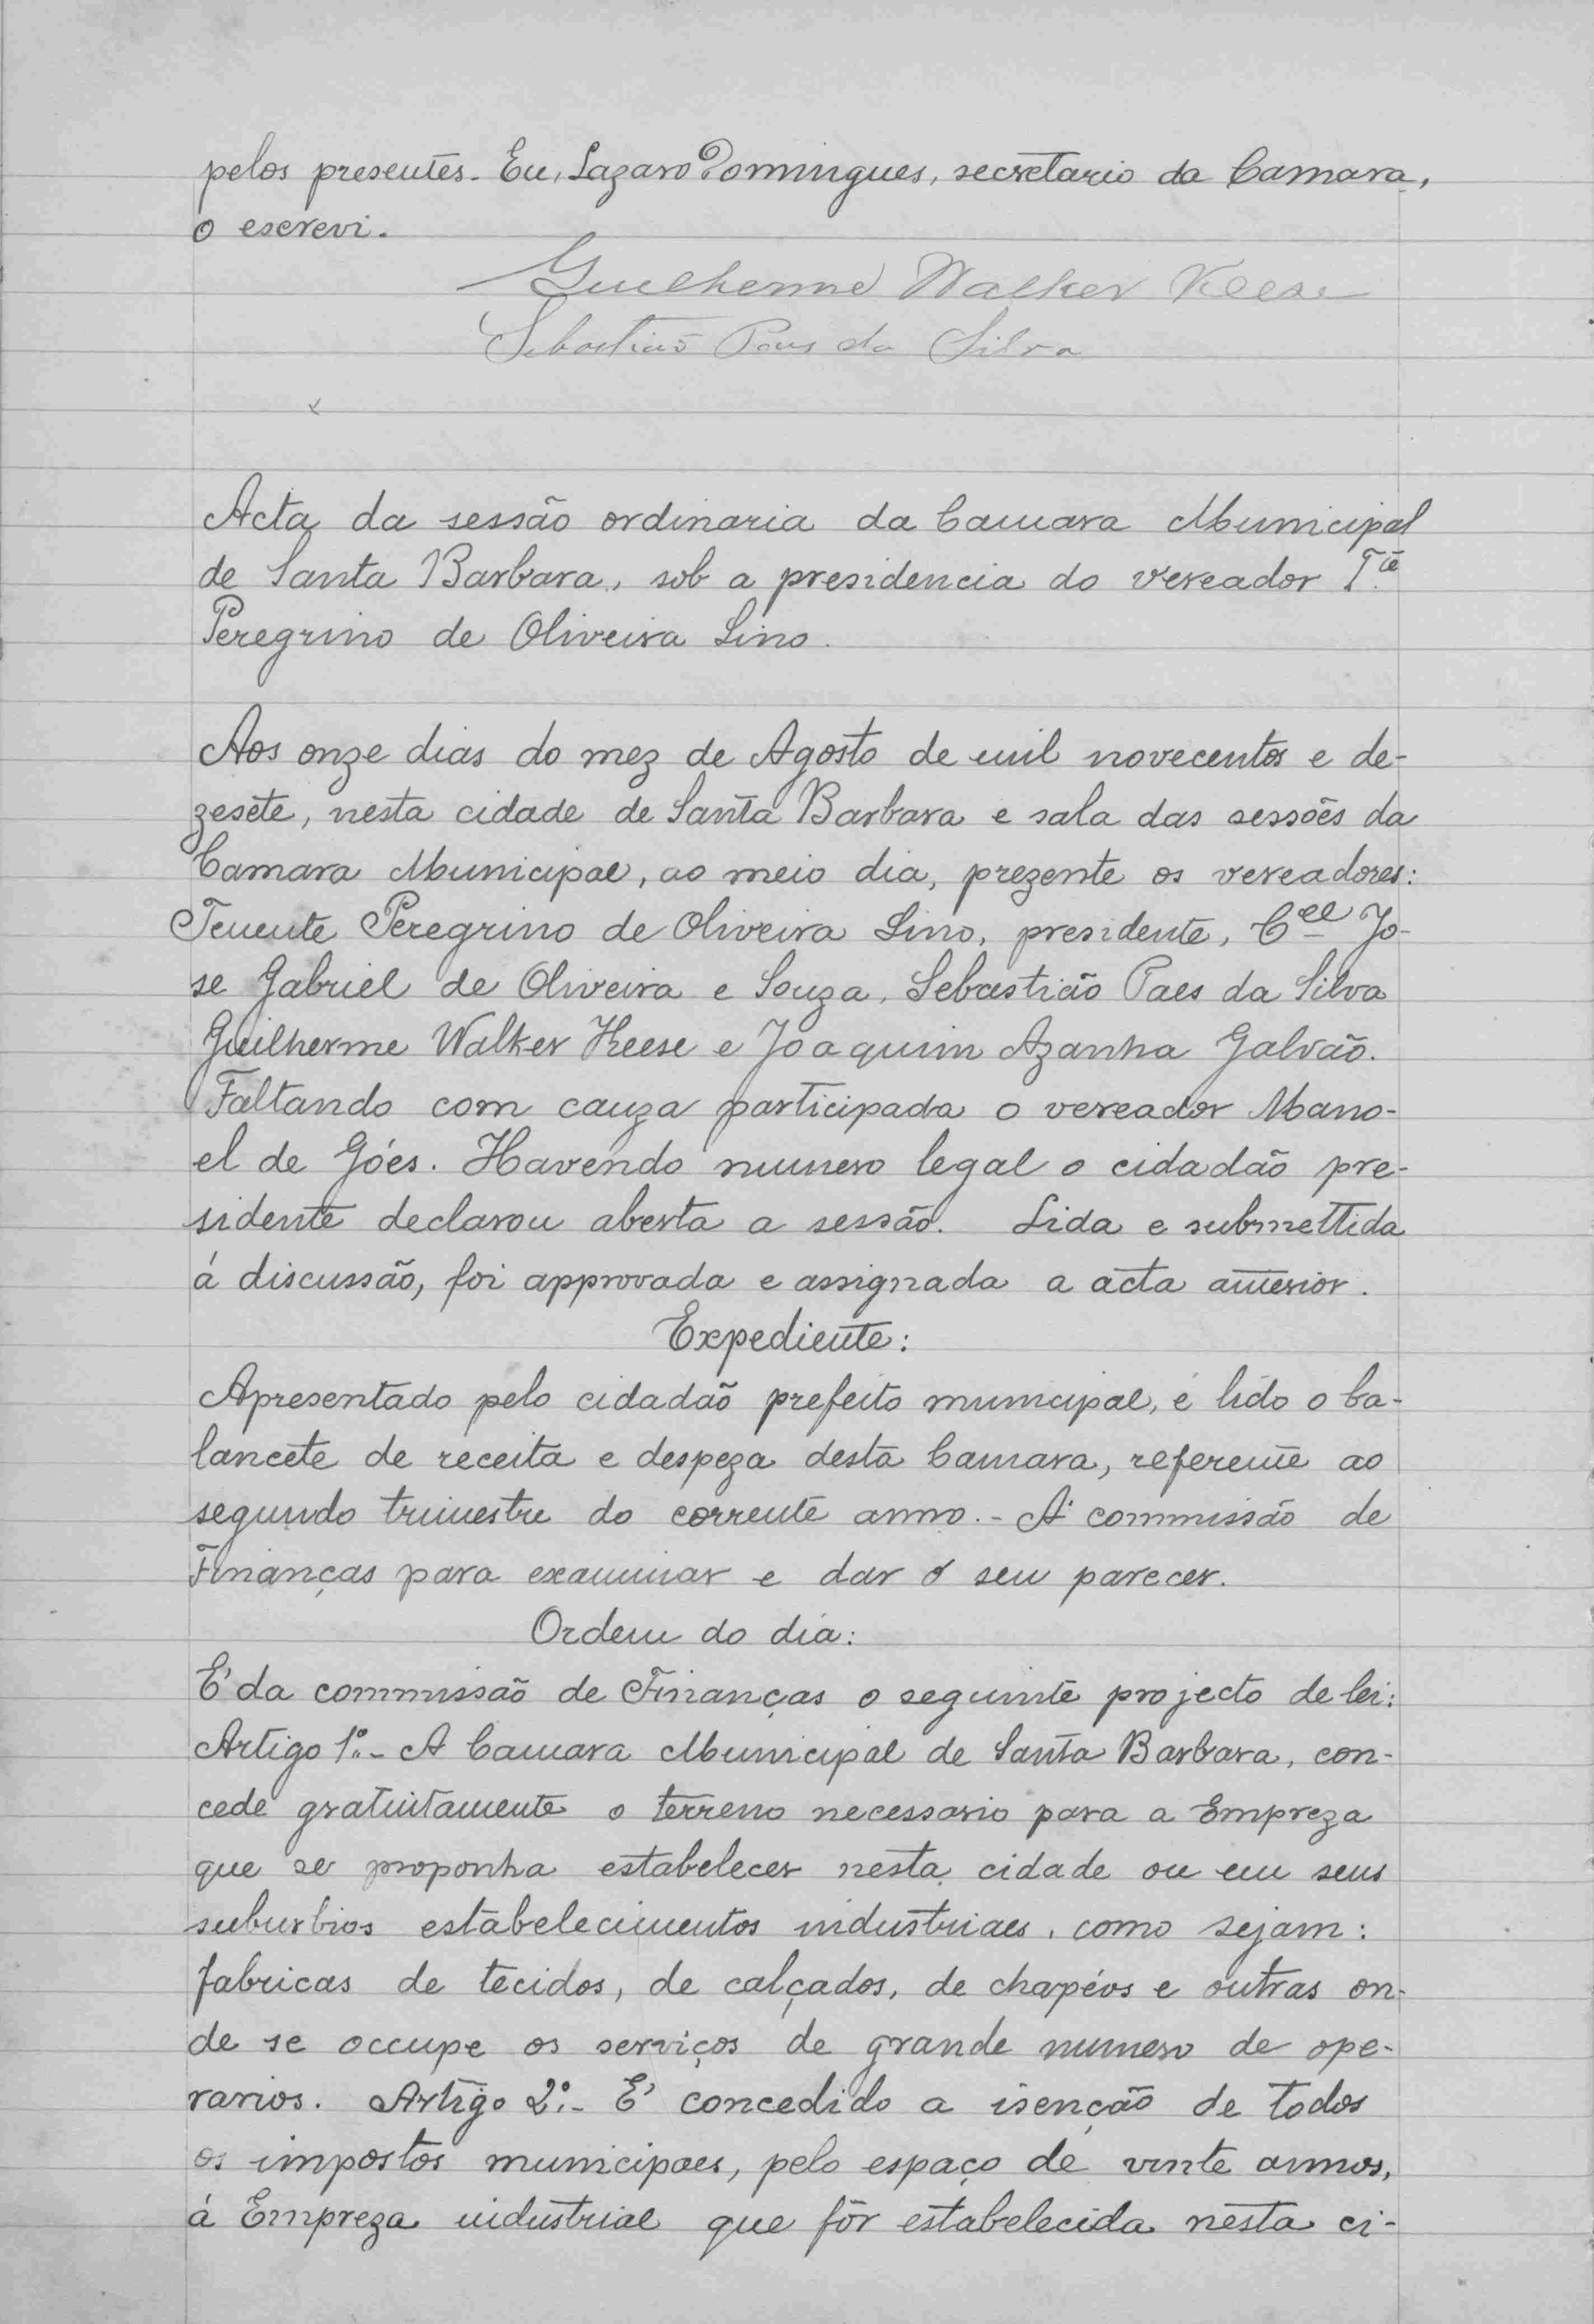 pelos presentes. Eu, Lazaro Domingues, secretario da Camara,
o escrevi.
Guilherme Walker Keese
Sebastião Paes da Silva
Acta da sessão ordinaria da Camara Municipal
de Santa Barbara, sob a presidencia do vereador T.te
Peregrino de Oliveira Lino.
Aos onze dias do mez de Agosto de mil novecentos e de-
zesete, nesta cidade de Santa Barbara e sala das sessões da
Camara Municipal, ao meio dia, prezente os vereadores:
Tenente Peregrino de Oliveira Lino, presidente, Cel Jo-
se Gabriel de Oliveira e Souza, Sebastião Paes da Silva
Guilherme Walker Keese e Joaquim Azanha Galvão.
Faltando com cauza participada o vereador Mano-
el de Góes. Havendo numero legal o cidadão pre-
sidente declarou aberta a sessão. Lida e submettida
á discussão, foi approvada e assignada a acta anterior.
Expediente:
Apresentado pelo cidadão prefeito municipal, é lido o ba-
lancete de receita e despeza desta Camara, referente ao
segundo trimestre do corrente anno. - A' commissão de
Finanças para examinar e dar o seu parecer.
Ordem do dia:
E' da commissão de Finanças o seguinte projecto de lei:
Artigo 1º. - A Camara Municipal de Santa Barbara, con-
cede gratuitamente o terreno necessario para a Empreza
que se proponha estabelecer nesta cidade ou em seus
suburbios estabelecimentos industriaes, como sejam:
fabricas de tecidos, de calçados, de chapéos e outras on-
de se occupe os serviços de grande numero de ope-
rarios. Artigo 2º. - E' concedido a isenção de todos
os impostos municipaes, pelo espaço de vinte annos,
á Empreza industrial que fôr estabelecida nesta ci-